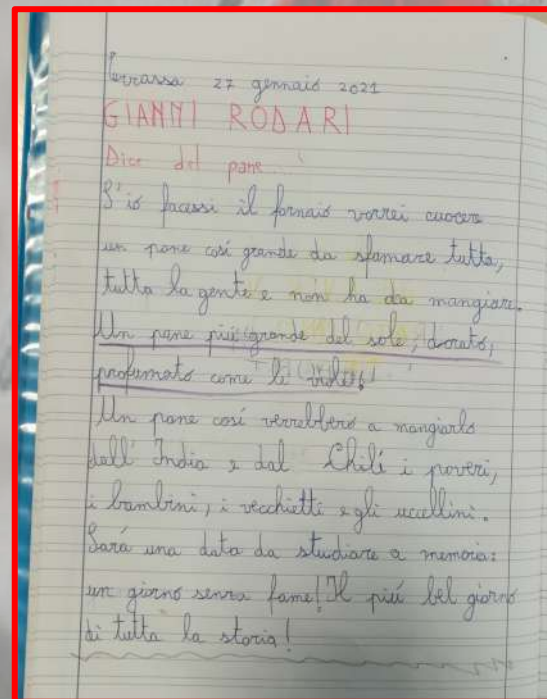 Terrassa 27 gennaio 2021
GIANNI RODARI
Dice del pane...
S'io facessi il fornaio vorrei cuocere
un pane così grande da sfamare tutta,
tutta la gente e non ha da mangiare.
Un pane più grande del sole, dorato,
profumato come le viole!
Un pane così verrebbero a mangiarlo
dall' India e dal Chilé i poveri,
i bambini, i vecchietti e gli uccellini.
Sará una data da studiare a memoria:
un giorno senza fame! Il piú bel giorno
di tutta la storia!